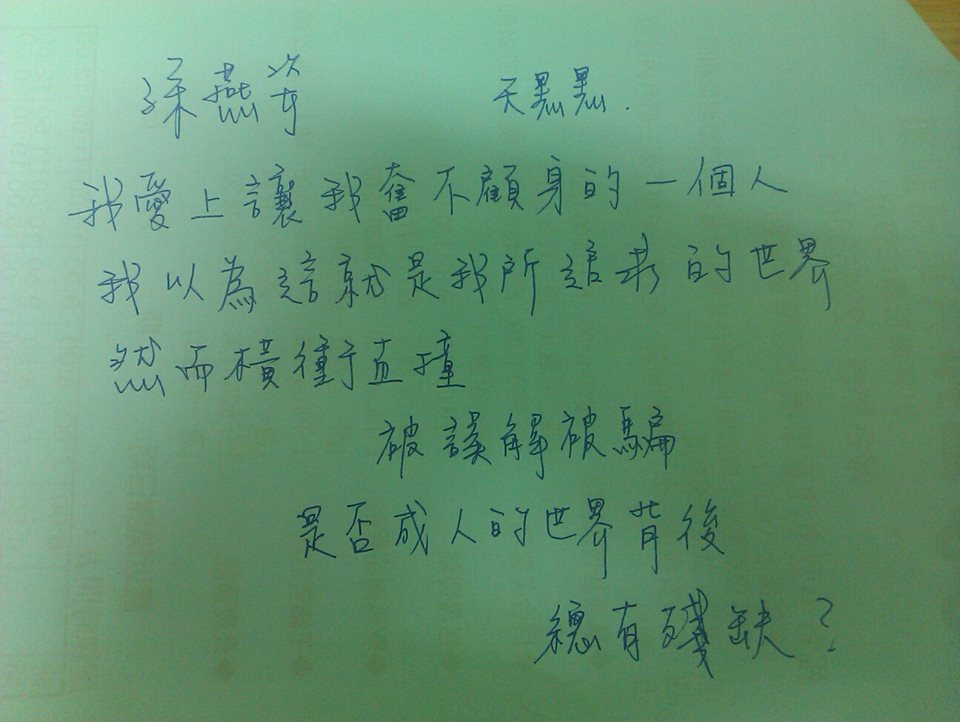 孫燕姿 天黑黑.
我愛上讓我奮不顧身的一個人
我以為這就是我所追求的世界
然而橫衝直撞
被誤解被騙
是否成人的世界背後
總有殘缺?